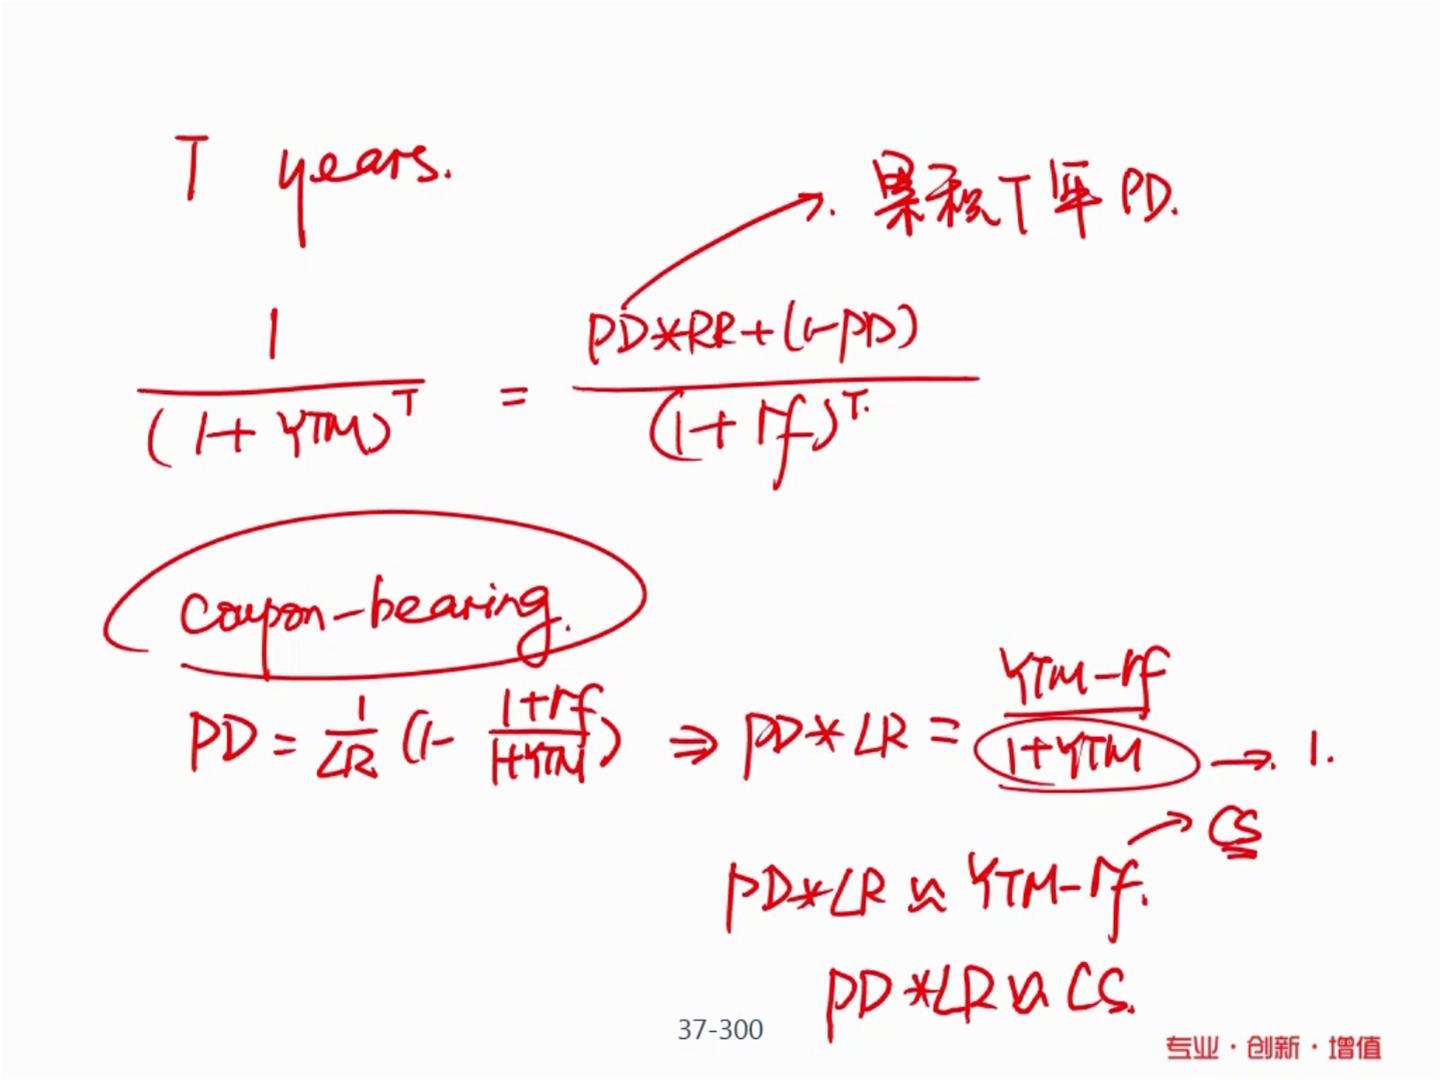 T years.
累积T年PD.
1 / (1+YTM)^T = PD*RR+(1-PD) / (1+rf)^T.
coupon-bearing.
PD = 1/LR (1- 1+rf/1+YTM) ⇒ PD*LR = YTM-rf / 1+YTM → 1.
CS
PD*LR ≈ YTM-rf.
PD*LR ≈ CS.
37-300
专业·创新·增值